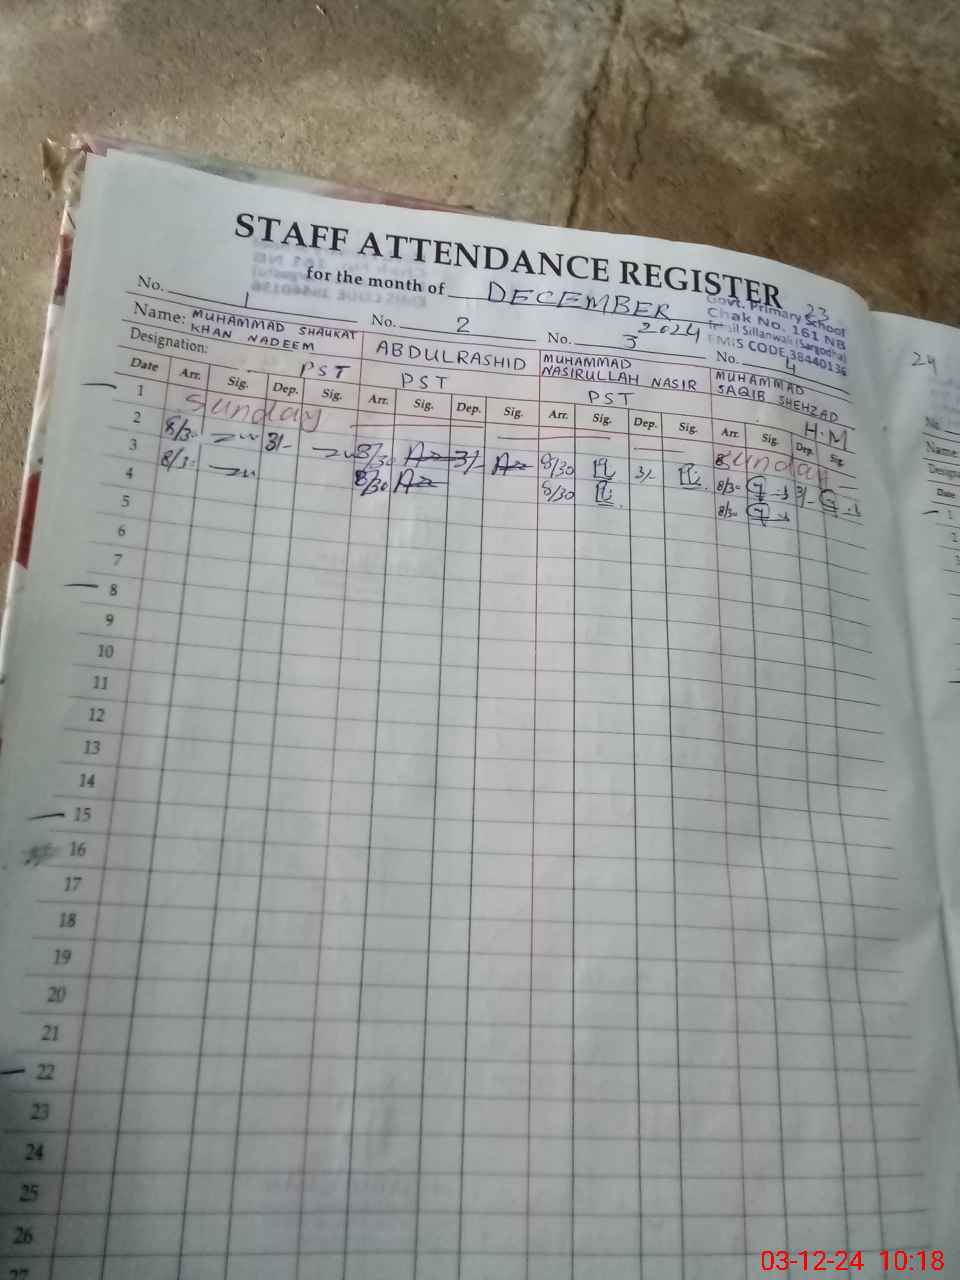 STAFF ATTENDANCE REGISTER
for the month of DECEMBER
2024
23
Govt. Primary School
Chak No. 161 NB
Sillanwali (Sargodha)
EMIS CODE 38440136
No. 1 No. 2 No. 3 No. 4
Name: MUHAMMAD SHAUKAT KHAN NADEEM
ABDULRASHID
MUHAMMAD NASIRULLAH NASIR
MUHAMMAD SAQIB SHEHZAD
Designation: PST PST PST H.M
Date Arr. Sig. Dep. Sig. Arr. Sig. Dep. Sig. Arr. Sig. Dep. Sig. Arr. Sig. Dep. Sig.
1 Sunday Sunday
2 8/30 3/- 8/30 3/- 8/30 3/- 8/30 3/-
3 8/30 8/30 8/30 8/30
4
5
6
7
8
9
10
11
12
13
14
15
16
17
18
19
20
21
22
23
24
25
26
27
24
No.
Name
Date
1
2
3
03-12-24 10:18